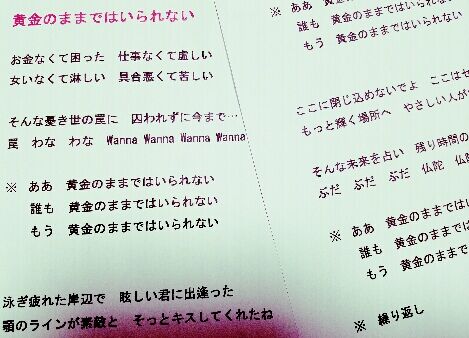 黄金のままではいられない
お金なくて困った 仕事なくて虚しい
女いなくて淋しい 具合悪くて苦しい
そんな憂き世の罠に 囚われずに今まで…
罠 わな わな Wanna Wanna Wanna Wanna
※ ああ 黄金のままではいられない
誰も 黄金のままではいられない
もう 黄金のままではいられない
泳ぎ疲れた岸辺で 眩しい君に出逢った
顎のラインが素敵と そっとキスしてくれたね
※ ああ 黄金のままではいられ
誰も 黄金のままではいられない
もう 黄金のままではいられない
ここに閉じ込めないでよ ここはせ
もっと輝く場所へ やさしい人が
そんな未来を占い 残り時間の
ぶだ ぶだ ぶだ 仏陀 仏
※ ああ 黄金のままではい
誰も 黄金のままでは
もう 黄金のままで
※ 繰り返し